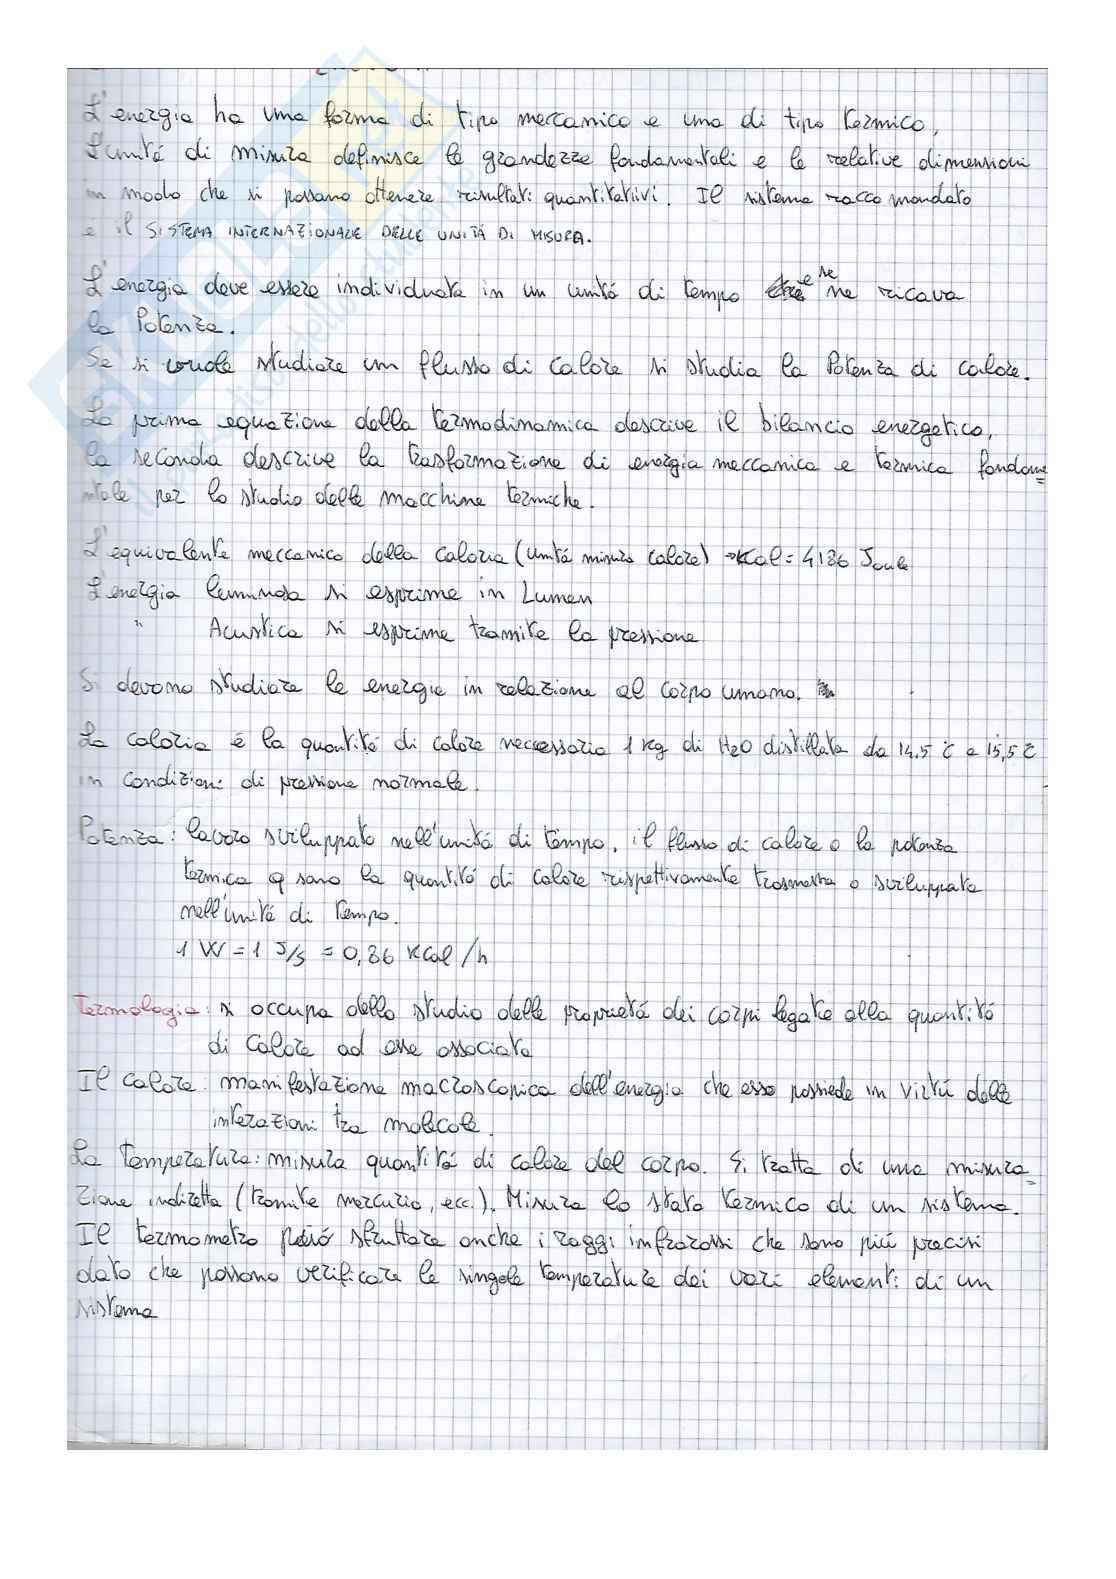 L'energia ha una forma di tipo meccanico e una di tipo termico,
L'unitá di misura definisce le grandezze fondamentali e le relative dimensioni
in modo che si possano ottenere risultati quantitativi. Il sistema raccomandato
e il SISTEMA INTERNAZIONALE DELLE UNITÁ DI MISURA.
L'energia deve essere individuata in un unitá di tempo e se ne ricava
la Potenza.
Se si vuole studiare un flusso di calore si studia la Potenza di calore.
La prima equazione della termodinamica descrive il bilancio energetico,
la seconda descrive la trasformazione di energia meccanica e termica fondame=
ntale per lo studio delle macchine termiche.
L'equivalente meccanico della caloria (unitá misura calore) → Kcal = 4186 Joule
L'energia luminosa si esprime in Lumen
" Acustica si esprime tramite la pressione
Si devono studiare le energie in relazione al corpo umano.
La caloria é la quantitá di calore neccessaria 1 kg di H2O distillata da 14,5 °C a 15,5 °C
in condizioni di pressione normale.
Potenza: lavoro sviluppato nell'unitá di tempo, il flusso di calore o la potenza
termica q sono la quantitá di calore rispettivamente trasmessa o sviluppata
nell'unitá di tempo.
1 W = 1 J/s = 0,86 Kcal/h
Termologia: si occupa dello studio delle proprietá dei corpi legate alla quantitá
di calore ad esse associata
Il calore: manifestazione macroscopica dell'energia che esso possiede in virtú delle
interazioni tra molecole.
La temperatura: misura quantitá di calore del corpo. Si tratta di una misura=
zione indiretta (tramite mercurio, ecc.). Misura lo stato termico di un sistema.
Il termometro puó sfruttare anche i raggi infrarossi che sono piú precisi
dato che possono verificare le singole temperature dei vari elementi di un
sistema